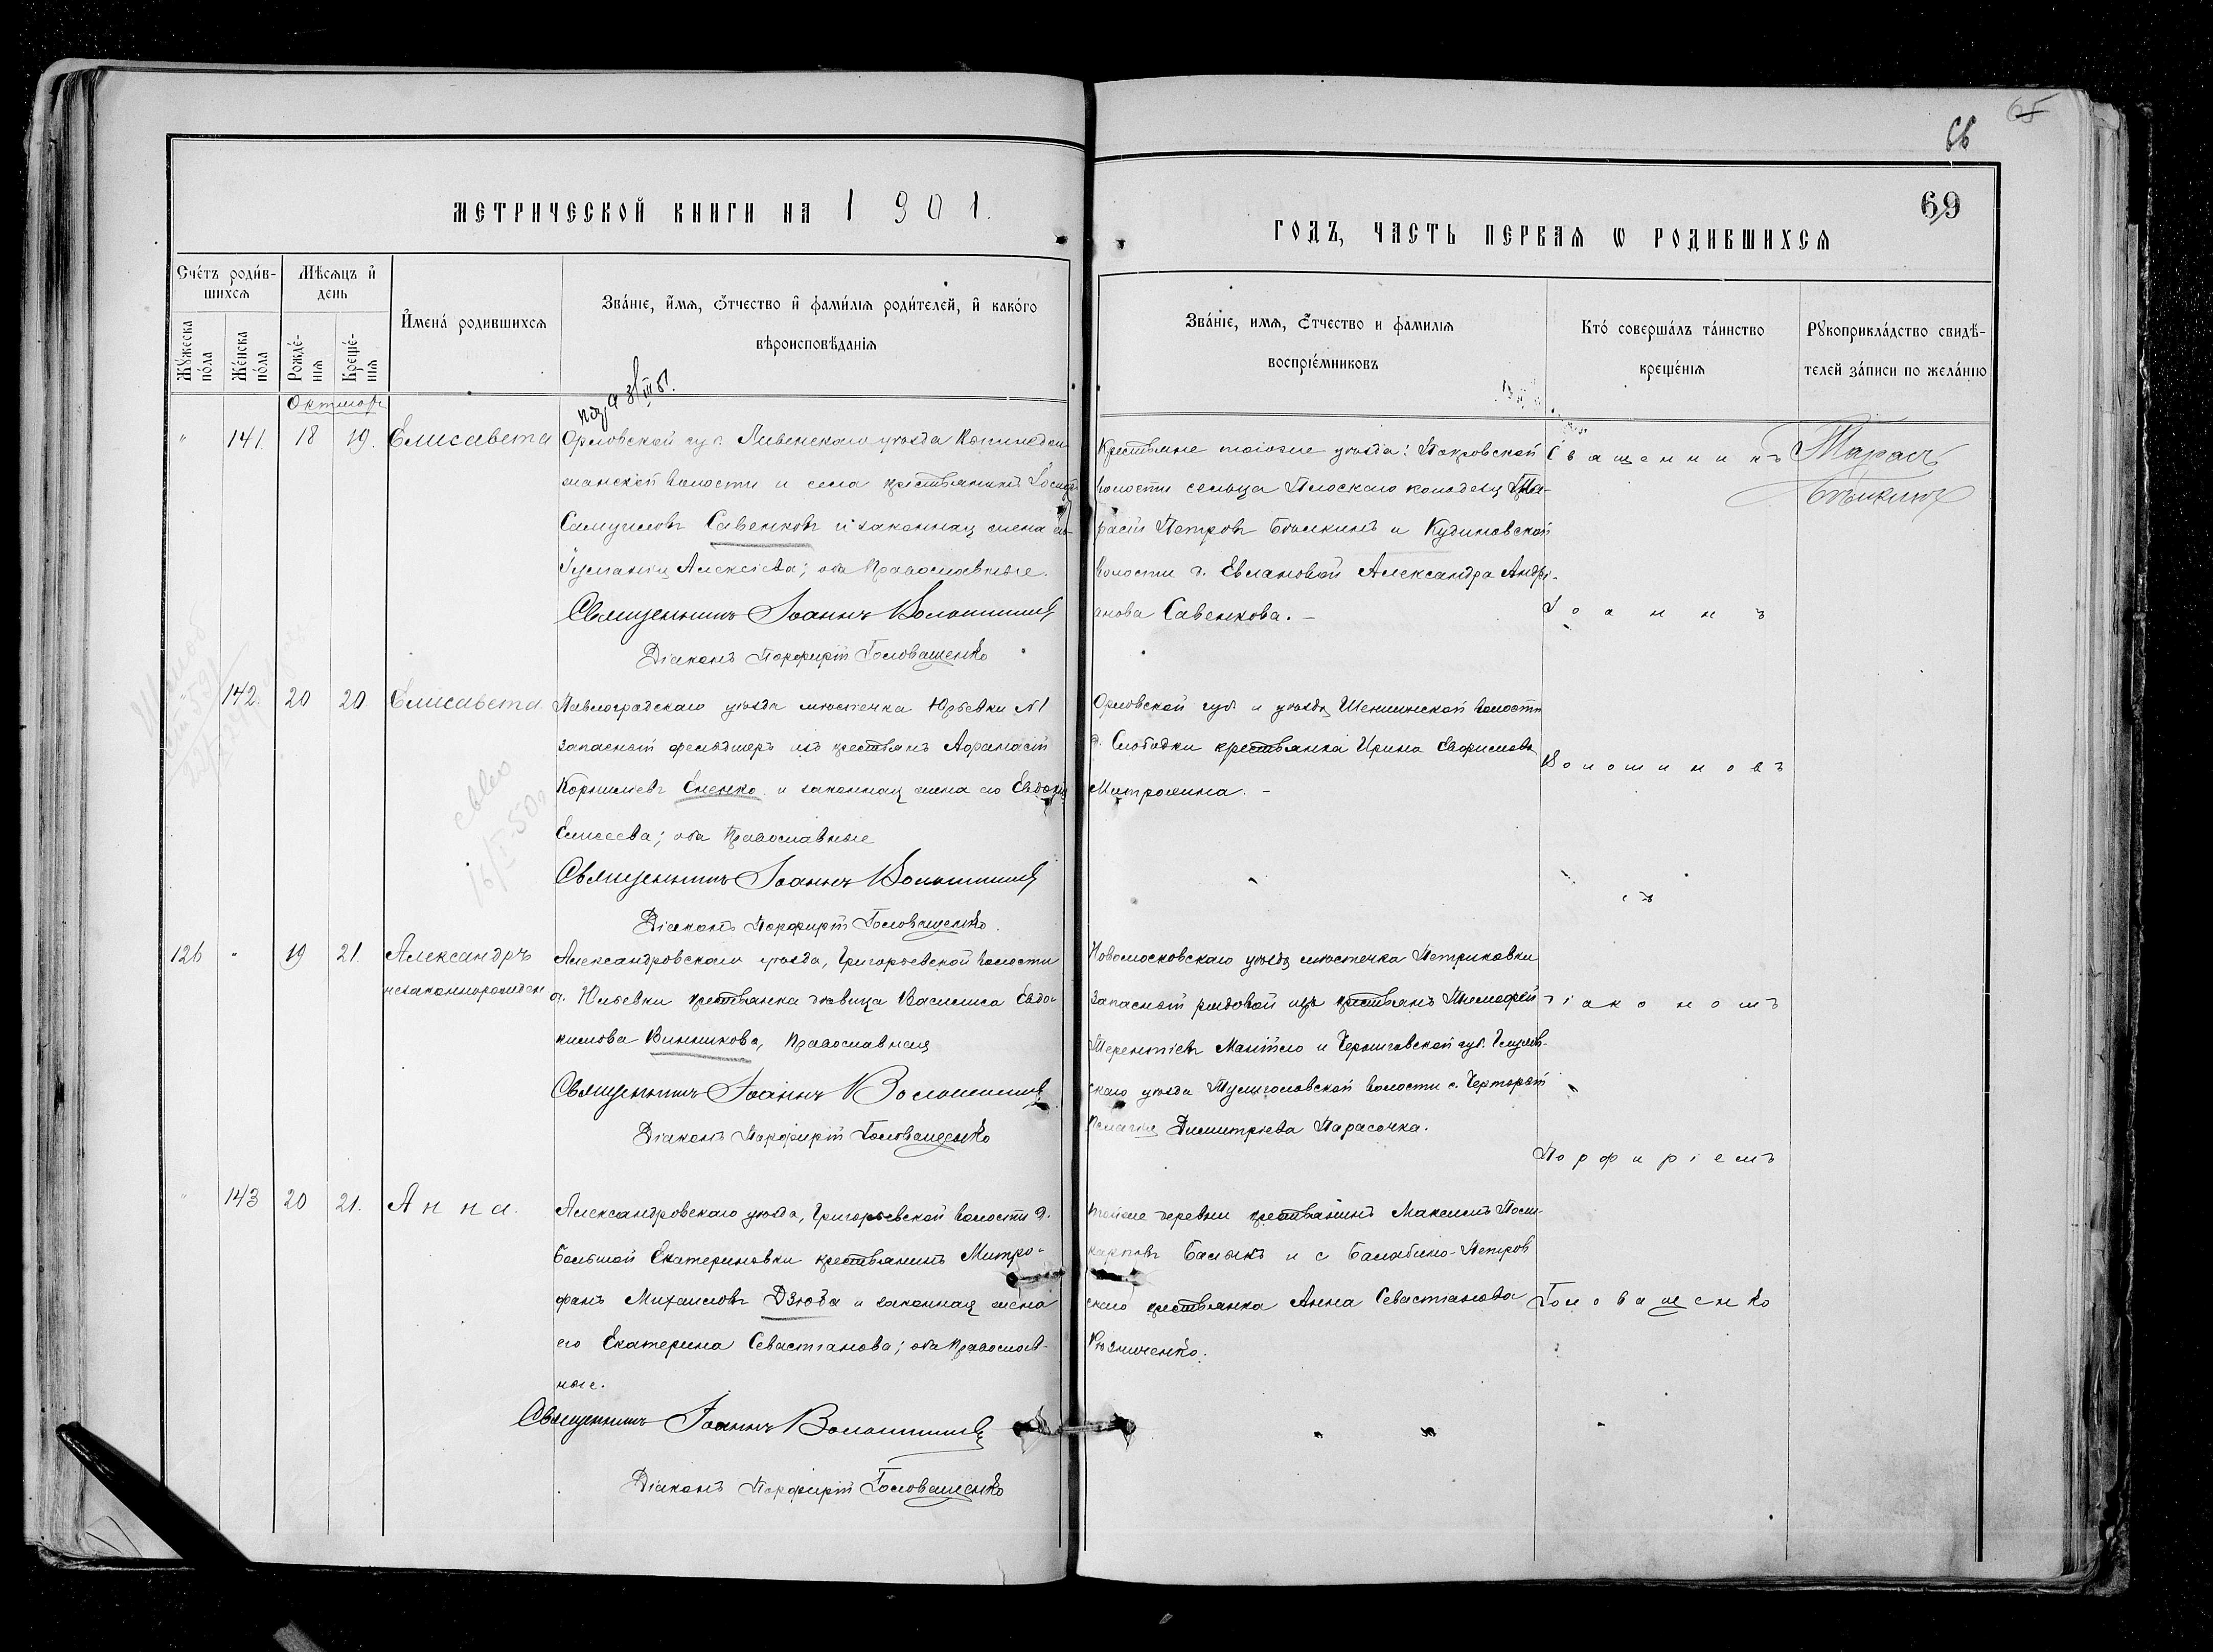 65
66
69
МЕТРИЧЕСКОЙ КНИГИ НА 1901.
ГОДЪ, ЧАСТЬ ПЕРВАЯ Ѡ РОДИВШИХСѦ
Сче́тъ роди́в-
шихсѧ
Мѣсѧцъ и҆
день
И҆мена́ родившихсѧ
Зва́нїе, и҆́мѧ, ѻ҆́тчество и҆ фами́лїѧ роди́телей, и҆ како́го
вѣроисповѣ́данїѧ
Мꙋ́жеска
по́ла
Же́нска
по́ла
Рожде́-
нїѧ
Креще́-
нїѧ
Зва́нїе, имѧ, ѻ҆́тчество и фамилїѧ
воспрїе́мниковъ
Кто́ соверша́лъ та́инство
креще́нїѧ
Рꙋкоприкла́дство свидѣ́-
телей за́писи по жела́нїю
Октября
" 141. 18 19. Елисавета
Орловской губ. Ливенскаго уѣзда
волости и села крестьянинъ
Самуиловъ Савенковъ и законная жена его
Алексіева; оба Православные.
Священникъ Іоаннъ Волошиновъ
Діаконъ Порфирій Головащенко
Крестьяне тогоже уѣзда: Покровской
волости сельца Плоскаго колодезя Та-
расій Петровъ Бѣлкинъ и Кудиновской
волости д. Евлановой Александра Андрі-
анова Савенкова. –
Тарасъ
Бѣлкинъ
" 142. 20 20. Елисавета
Павлоградскаго уѣзда мѣстечка Юрьевки №1
запасный фельдшеръ изъ крестьянъ Афанасій
Корнильевъ Ененко и законная жена его Евдокія
Елисеева; оба Православные
Священникъ Іоаннъ Волошиновъ
Діаконъ Порфирій Головащенко.
Орловской губ. и уѣзда волости
д. Слободки крестьянка Ирина Евфимова
Митрохина. –
126 " 19 21. Александръ
незаконнорожден
Александровскаго уѣзда, Григорьевской волости
д. Юльевки крестьянка дѣвица Василиса Евдо-
кимова Винникова, Православная
Священникъ Іоаннъ Волошиновъ
Діаконъ Порфирій Головащенко
Новомосковскаго уѣзда мѣстечка Петриковки
запасный рядовой изъ крестьянъ Тимофей
Терентіевъ и Черниговской губ. Глухов-
скаго уѣзда Тулиголовской волости с. Чорторый
Пелагія Димитріева Парасочка.
" 143 20 21. Анна.
Александровскаго уѣзда, Григорьевской волости д.
Большой Екатериновки крестьянинъ Митро-
фанъ Михаиловъ Дзюба и законная жена
его Екатерина Севастіанова; оба Православ-
ные.
Священникъ Іоаннъ Волошиновъ
Діаконъ Порфирій Головащенко
Тойже деревни крестьянинъ Максимъ Поли-
карповъ Балыкъ и с. Балабино-Петров
скаго крестьянка Анна Севастіанова
Рѣзниченко.
Священникъ
Іоаннъ
Волошиновъ
съ
діакономъ
Порфиріемъ
Головащенко